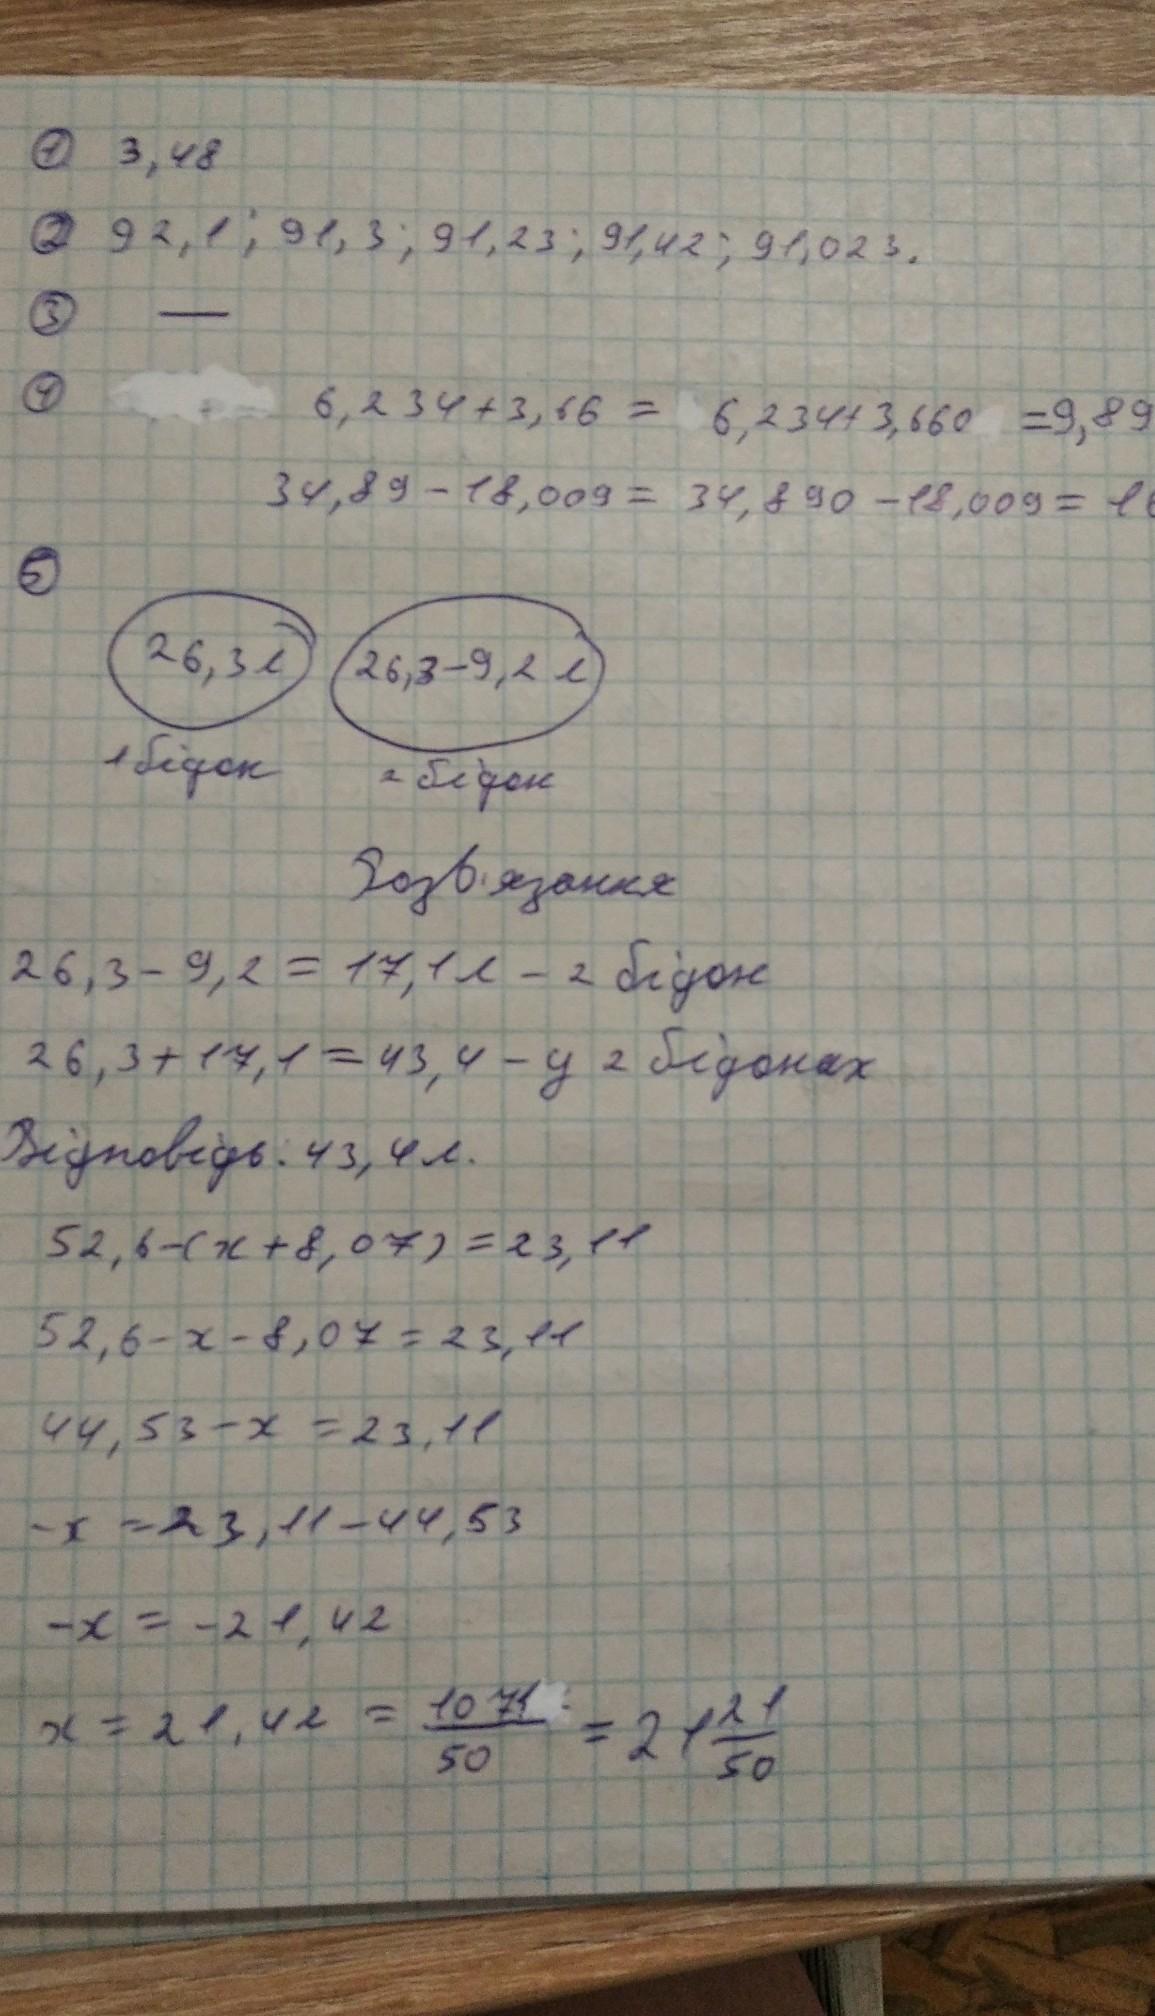 ① 3,48
② 92,1; 91,3; 91,23; 91,42; 91,023.
③ —
④ 6,234+3,66 = 6,234+3,660 =9,89
34,89-18,009= 34,890-18,009= 16
⑤
26,3л 26,3-9,2 л
1 бідон 2 бідон
Розв'язання
26,3-9,2=17,1л - 2 бідон
26,3+17,1=43,4 - у 2 бідонах
Відповідь: 43,4л.
52,6-(x+8,07)=23,11
52,6-x-8,07=23,11
44,53-x=23,11
-x=23,11-44,53
-x=-21,42
x=21,42 = 1071/50 = 21 21/50